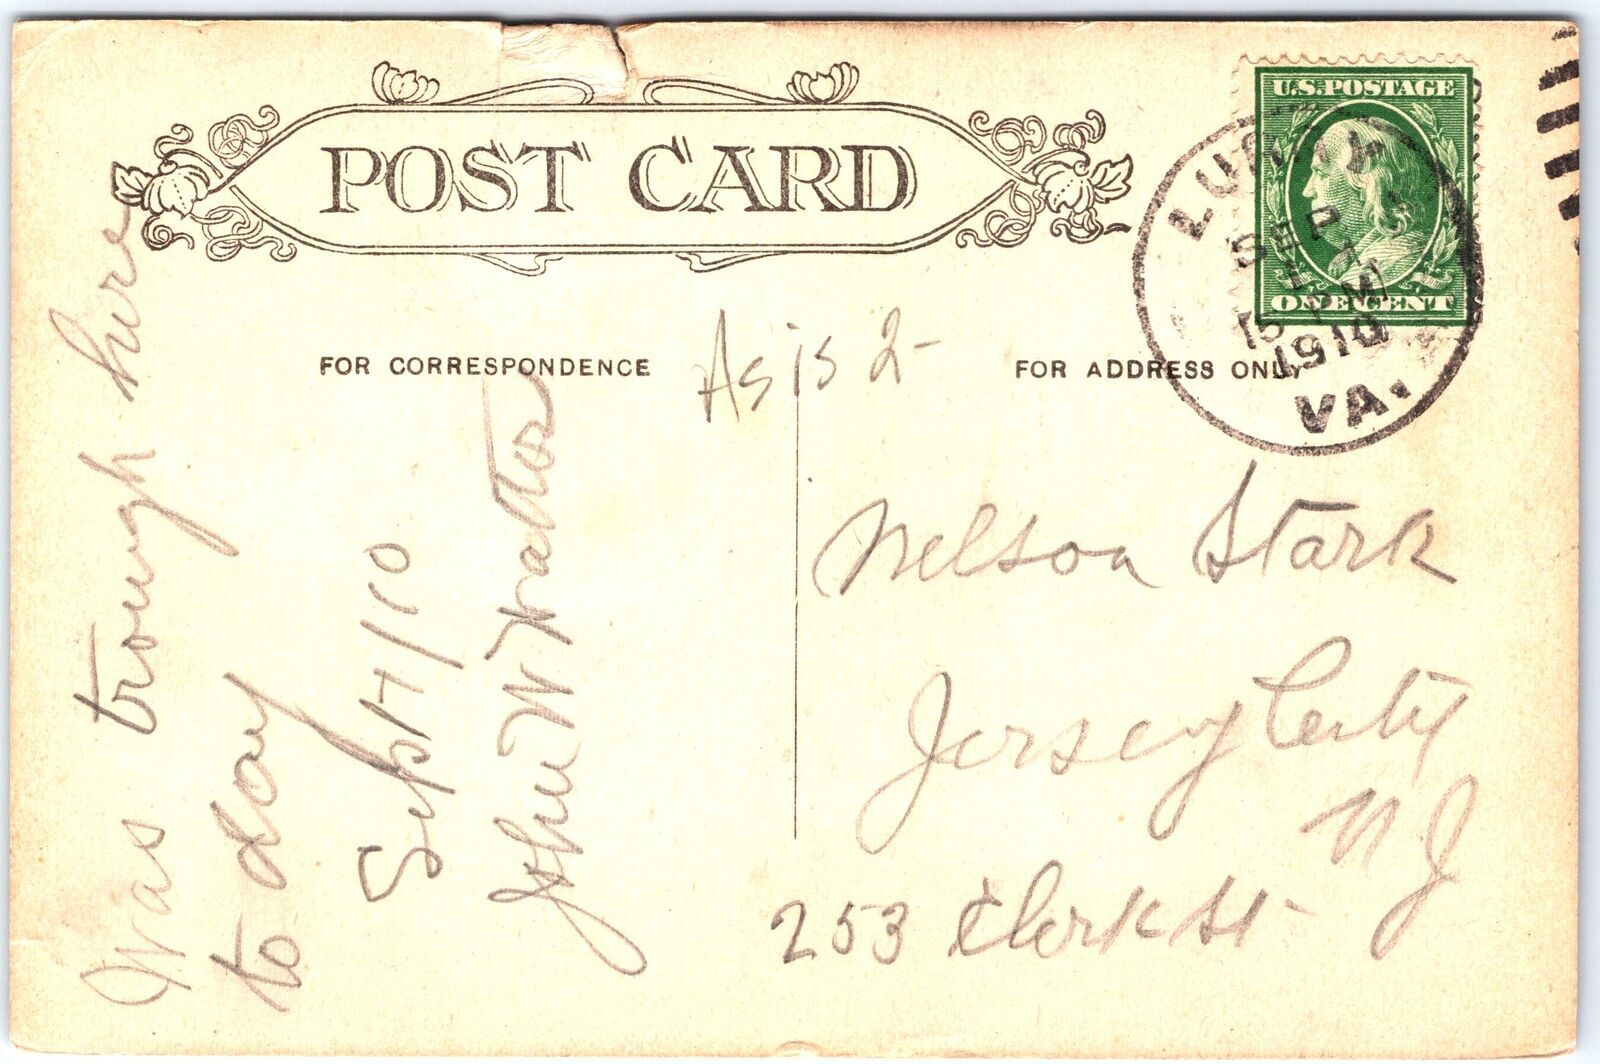 POST CARD
U.S. POSTAGE
ONE CENT
LURAY
SEP
7
15 PM
1910
VA.
FOR CORRESPONDENCE
As is 2-
FOR ADDRESS ONLY
Was trough here
to day
Sept 7/10
John W Walton
Nelson Stark
Jersey City
N J
253 Clerk St